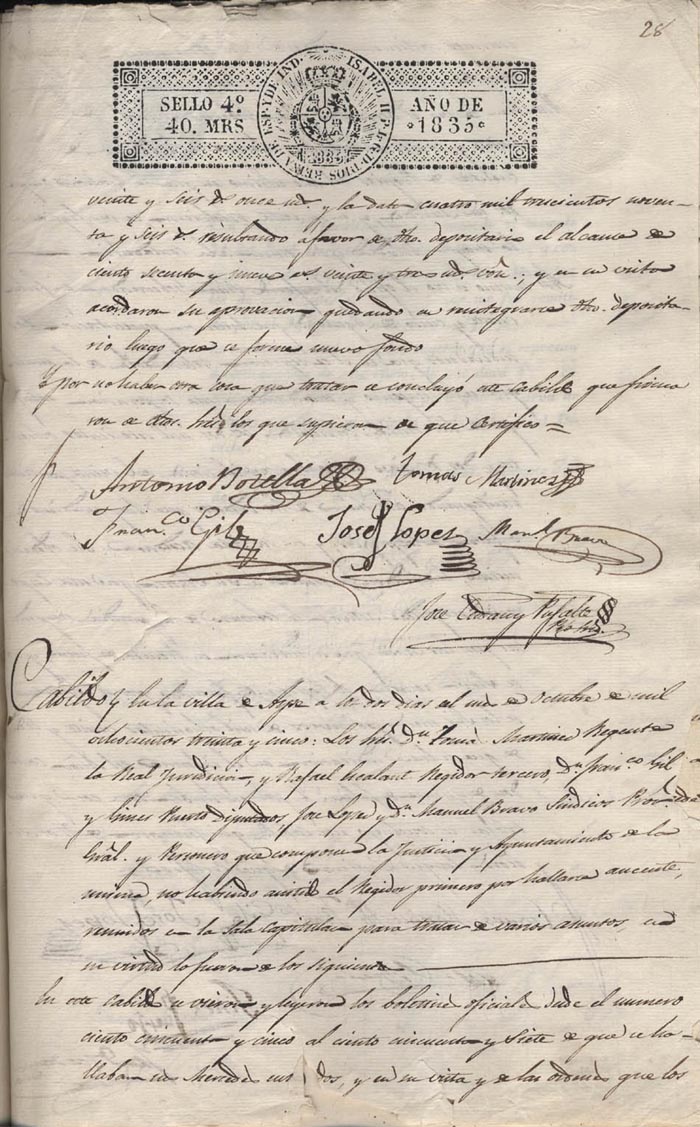 28
SELLO 4º
40. MRS
ISABEL II P. L. G. D. DIOS REINA DE ESP. Y DE IND.
1835
AÑO DE
1835
veinte y seis r.^s once m.^s y la data cuatro mil trescientos noven-
ta y seis r.^s resultando a favor de dho. depositario el alcance de
ciento secenta y nueve r.^s veinte y tres m.^s v.^on ; y en su vista
acordaron su aprovacion quedando en reintegrarse dho. deposita-
rio luego que se forme nuevo fondo
Y por no haber otra cosa que tratar se concluyó este Cabildo que firma
ron de dhos. S.res los que supieron de que Certifico =
Antonio Botella Tomas Martinez
Fran.co Gil José Lopez Man.l Bravo
Jose Rafael
Cabildo En la villa de Aspe a los dos dias del mes de Octubre de mil
ochocientos treinta y cinco: Los S.res D.n Tomás Martinez Regente
la Real Juridicion, y Rafael Regidor tercero, D.n Fran.co Gil
y Gines Puerto Diputados, Jose Lopez y D.n Manuel Bravo Sindicos Proc.
Gral. y Personero que componen la Justicia y Ayuntamiento de la
misma, no habiendo asistido el Regidor primero por hallarse aucente,
reunidos en la Sala Capitular para tratar de varios asuntos, en
su virtud lo fueron de los siguientes
En este Cabildo se vieron y leyeron los boletines oficiales desde el numero
ciento cincuenta y cinco al ciento cincuenta y siete de que se ha-
llaban sus Mercedes dos, y en su vista y de las ordenes que los